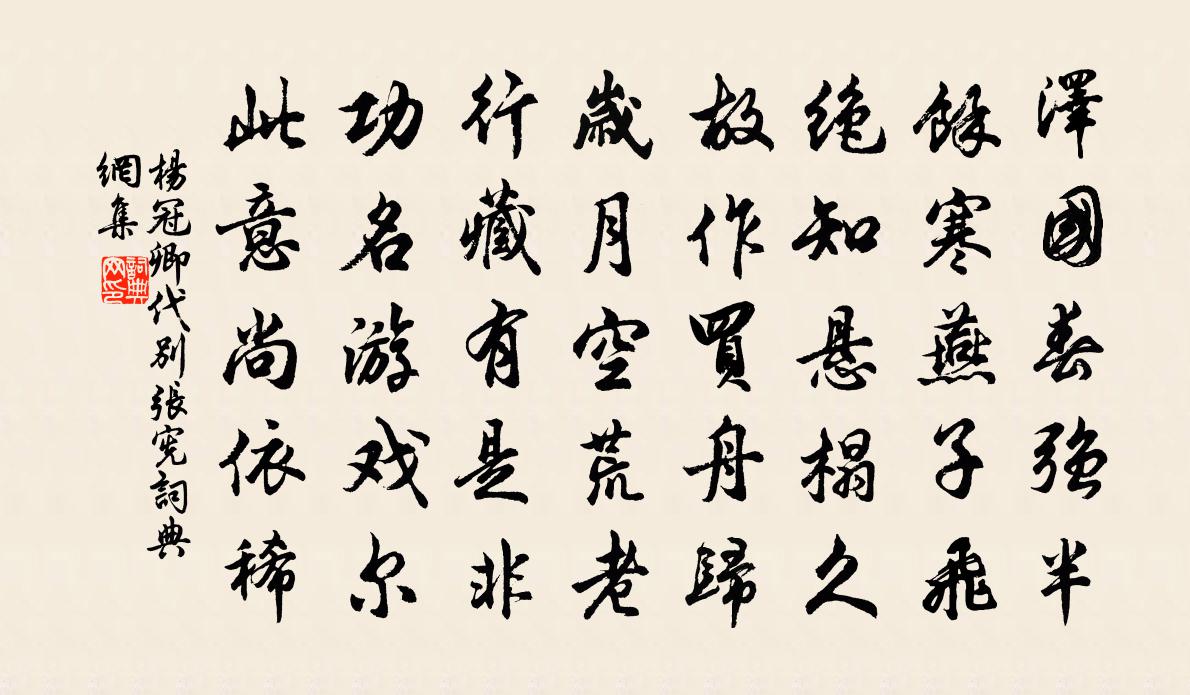 澤國春強半
餘寒燕子飛
绝知悬榻久
故作買舟歸
歲月空荒老
行藏有是非
功名游戏尔
此意尚依稀
楊冠卿代別張憲詞典
網集
詞典
网印